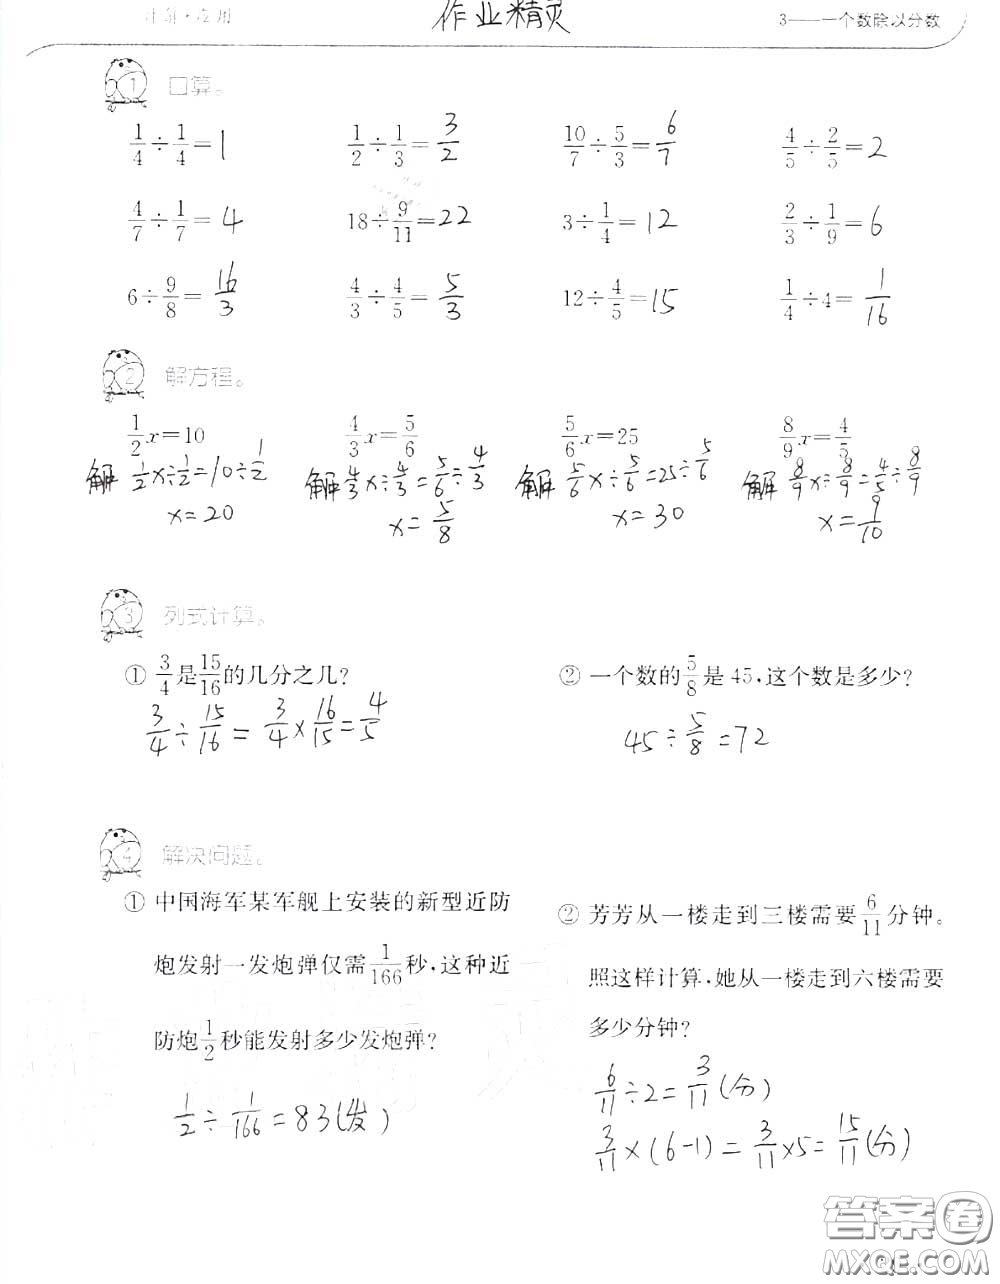 计算·应用 作业精灵 3——一个数除以分数
1 口算。
1/4÷1/4=1 1/2÷1/3=3/2 10/7÷5/3=6/7 4/5÷2/5=2
4/7÷1/7=4 18÷9/11=22 3÷1/4=12 2/3÷1/9=6
6÷9/8=16/3 4/3÷4/5=5/3 12÷4/5=15 1/4÷4=1/16
2 解方程。
1/2x=10 4/3x=5/6 5/6x=25 8/9x=4/5
解 1/2x÷1/2=10÷1/2 解 4/3x÷4/3=5/6÷4/3 解 5/6x÷5/6=25÷5/6 解 8/9x÷8/9=4/5÷8/9
x=20 x=5/8 x=30 x=9/10
3 列式计算。
① 3/4是15/16的几分之几?
3/4÷15/16=3/4×16/15=4/5
② 一个数的5/8是45,这个数是多少?
45÷5/8=72
4 解决问题。
① 中国海军某军舰上安装的新型近防
炮发射一发炮弹仅需1/166秒,这种近
防炮1/2秒能发射多少发炮弹?
1/2÷1/166=83(发)
② 芳芳从一楼走到三楼需要6/11分钟。
照这样计算,她从一楼走到六楼需要
多少分钟?
6/11÷2=3/11(分)
3/11×(6-1)=3/11×5=15/11(分)
答案圈
MXQE.COM